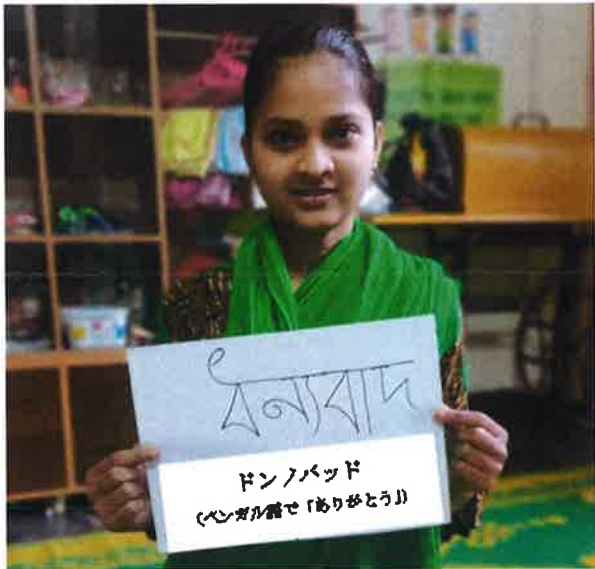 ধন্যবাদ
ドンノバッド
(ベンガル語で「ありがとう」)